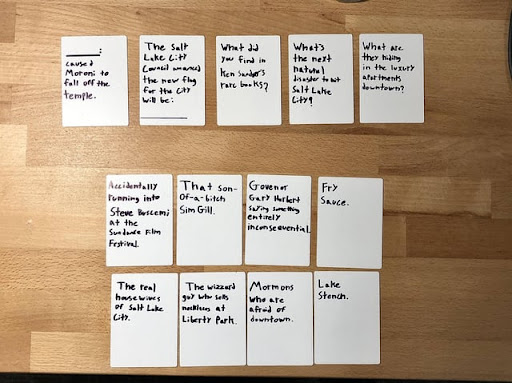 ______:
caused
Moroni to
fall off the
temple.
The Salt
Lake City
Council announced
the new flag
for the City
will be:
______
What did
you find in
Ken Sander's
rare books?
What's
the next
natural
disaster to hit
Salt Lake
City?
What are
they hiding
in the luxury
apartments
downtown?
Accidentally
running into
Steve Buscemi
at the
Sundance Film
Festival.
That son-
of-a-bitch
Sim Gill.
Govenor
Gary Herbert
saying something
entirely
inconsequential.
Fry
Sauce.
The real
housewives
of Salt Lake
City.
The wizzard
guy who sells
necklaces at
Liberty Park.
Mormons
who are
afraid of
downtown.
Lake
Stench.